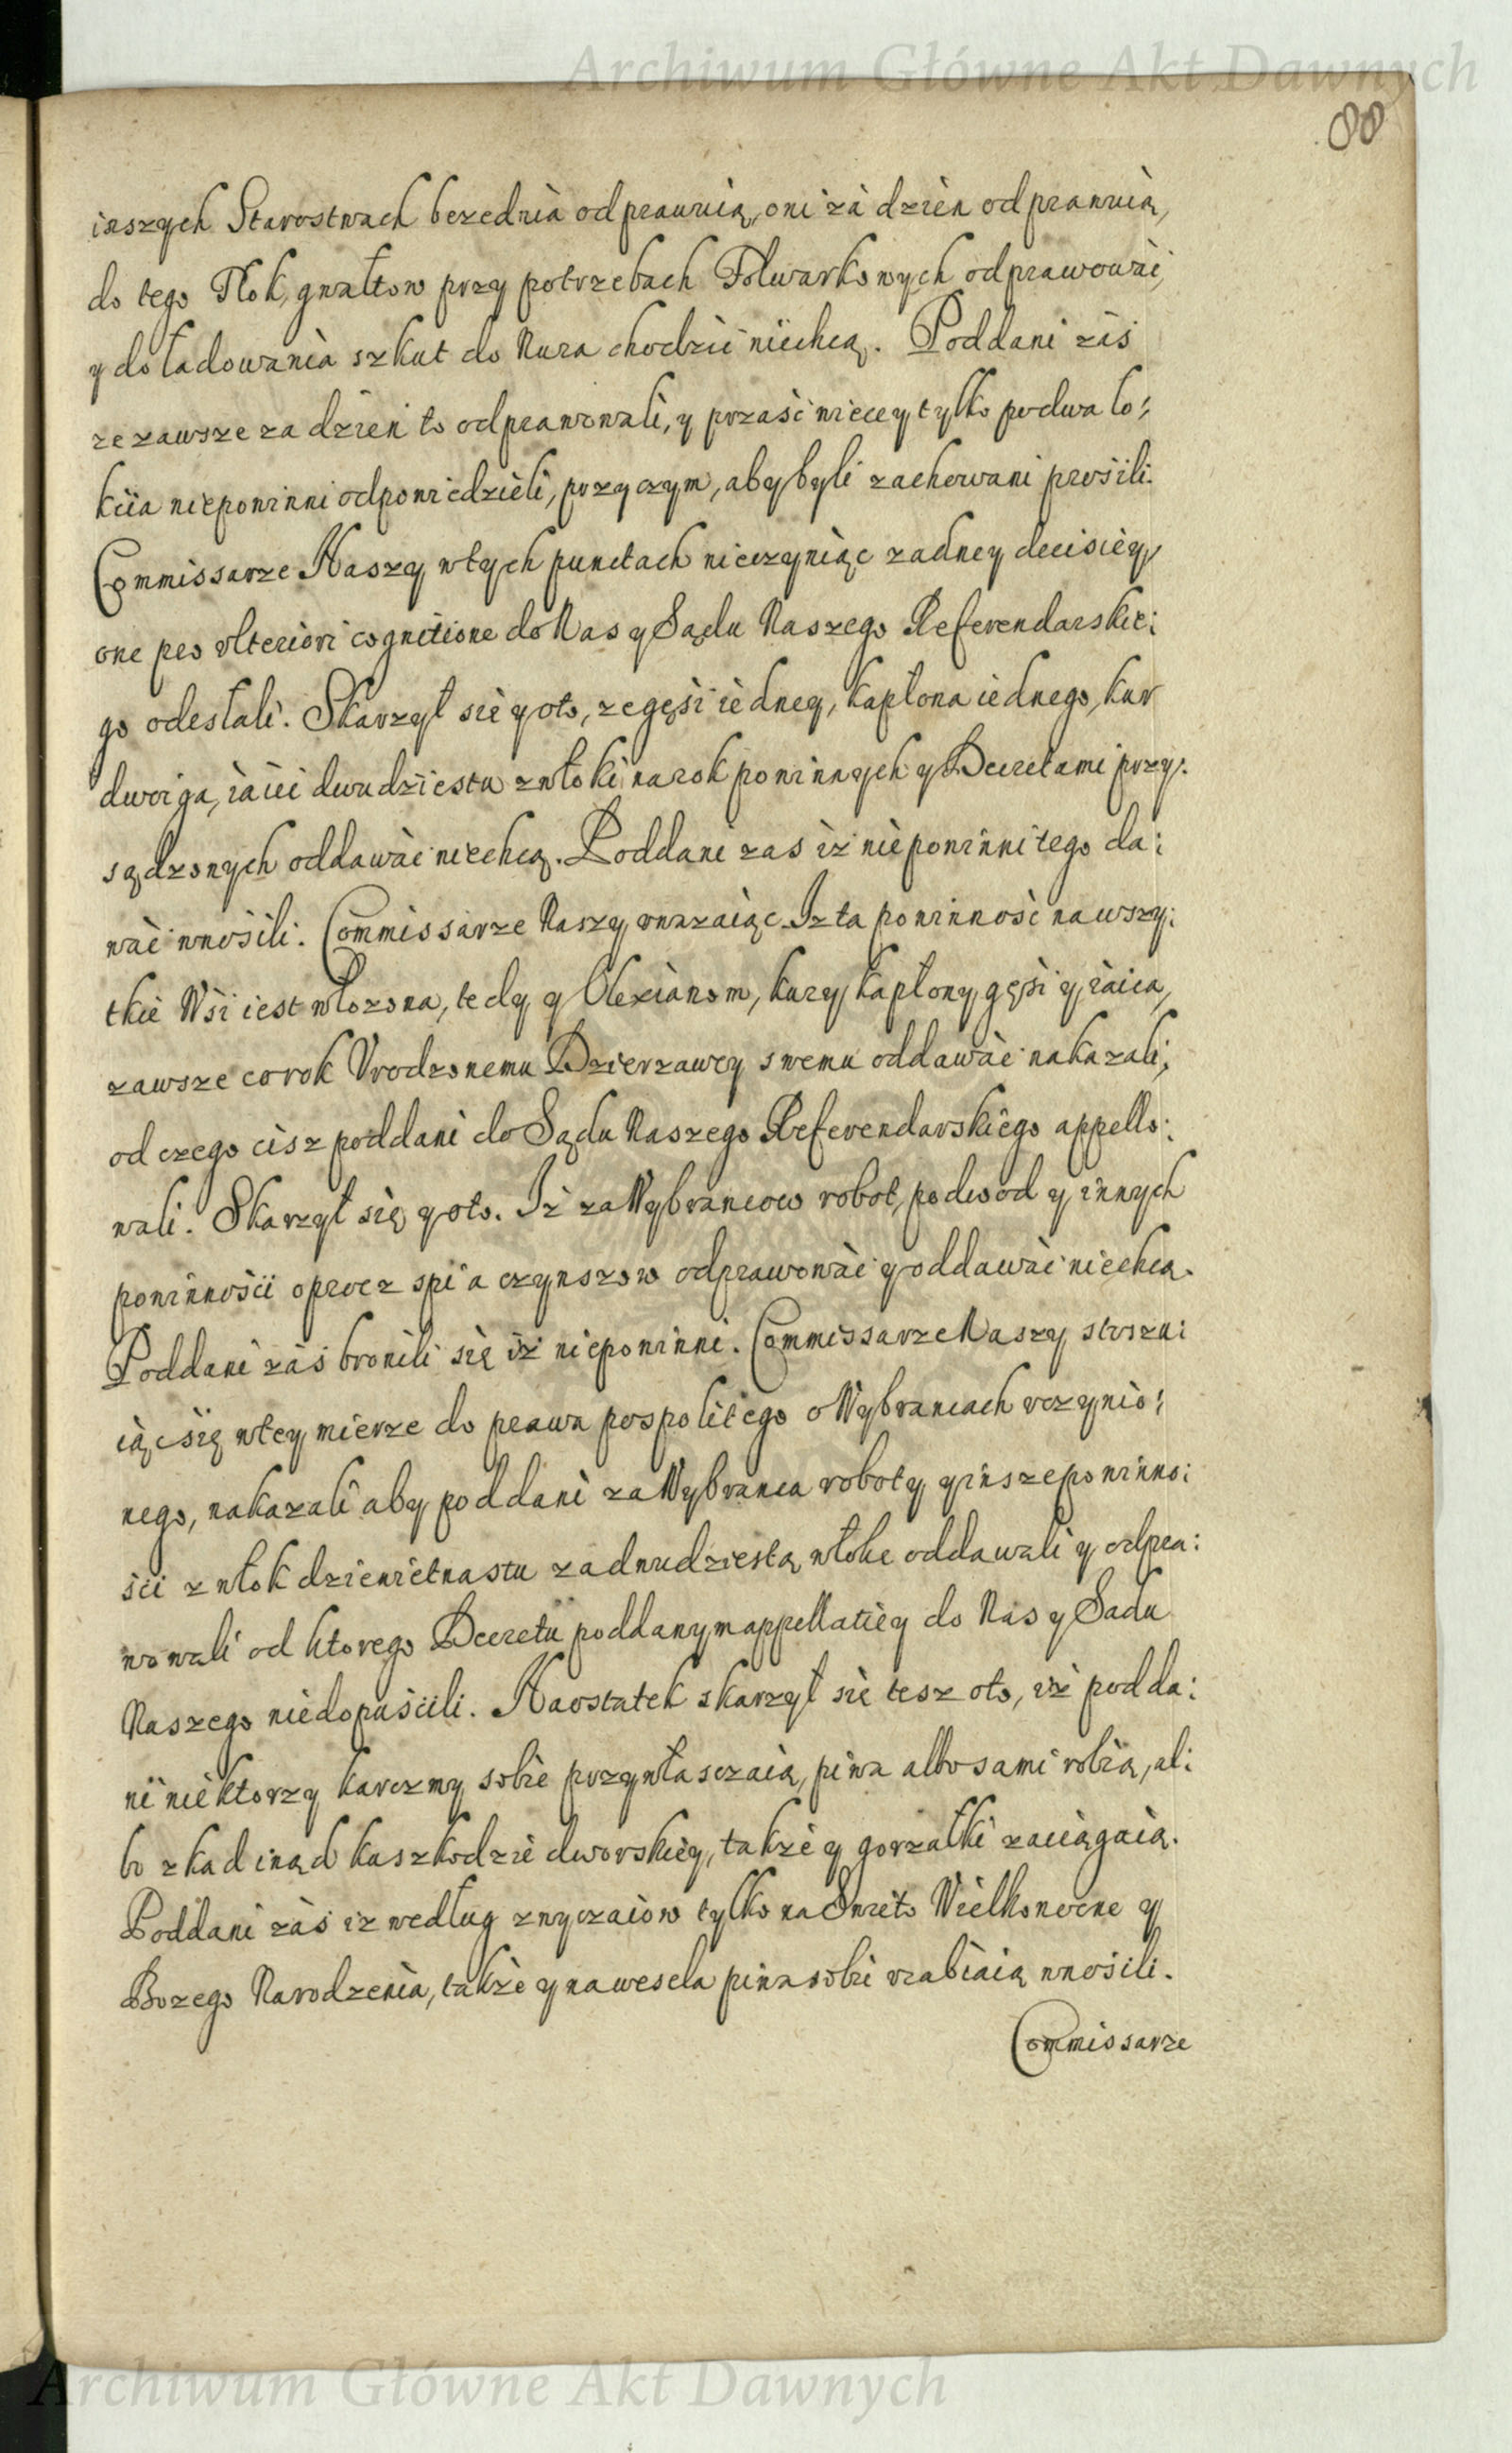 Archiwum Główne Akt Dawnych
88
inszych Starostwach bezednia odprawuią, oni za dzien odprawuią,
do tego Tłok, gwałtow przy potrzebach Folwarkowych odprawowáć,
y do ładowania szkut do Nura chodzić niechcą. Poddani zaś
ze zawsze za dzień to odprawowali, y prząść więcey tylko po dwa ło:
kcia niepowinni odpowiedzieli, przy czym, aby byli zachowani prosili.
Commissarze Naszy w tych punctach nieczyniąc zadney decisiey,
one pro vlteriori cognitione do Nas y Sądu Naszego Referendarskie:
go odesłali. Skarzył się y oto, ze gęsi iedney, kapłona iednego, kur
dwoiga, iaiec dwudziestu z włoki na rok powinnych y Decretami przy:
sądzonych oddawać niechcą. Poddani zas iż niepowinni tego da:
wać wnosili. Commissarze Naszy vwazaiąc Iz ta powinność na wszy:
tkie Wsi iest włozona, tedy y Olexianom, kury, kapłony, gęsi y iaica,
zawsze co rok Vrodzonemu Dzierzawcy swemu oddawać nakazali,
od czego cisz poddani do Sądu Naszego Referendarskiego appello:
wali. Skarzył się y oto. Iż za Wybrancow robot, podwod y innych
powinności oprocz spi a czynszow odprawować y oddawać niechcą.
Poddani zaś bronili się iż niepowinni. Commissarze Naszy stosuu:
iąc się w tey mierze do prawa pospolitego o Wybrancach vczynio:
nego, nakazali aby poddani za Wybranca roboty y insze powinno:
ści z włok dziewietnastu za dwudziestą włoke oddawali y odpra:
wowali od ktorego Decretu poddanym appellatiey do Nas y Sadu
Naszego niedopuścili. Naostatek skarzył się tesz oto, iż podda:
ni niektorzy karczmy sobie przywłasczaią, piwa albo sami robią, al:
bo zkad inąd ku szkodzie dworskiey, takze y gorzałki zaciągaią.
Poddani zaś iz według zwyczaiow tylko na Swieto Wielkonocne y
Bozego Narodzenia, także y na wesela piwa sobie vrabiaią wnosili.
Commissarze
Archiwum Główne Akt Dawnych